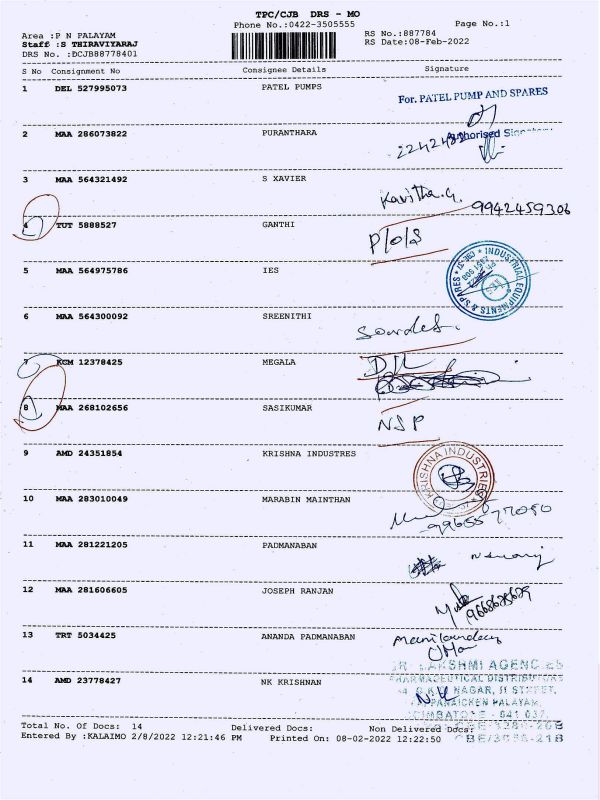 TPC/CJB DRS - MO
Phone No.:0422-3505555
Page No.:1
Area :P N PALAYAM
Staff :S THIRAVIYARAJ
DRS No. :DCJB88778401
RS No.:887784
RS Date:08-Feb-2022
S No Consignment No Consignee Details Signature
1 DEL 527995073 PATEL PUMPS
For. PATEL PUMP AND SPARES
2 MAA 286073822 PURANTHARA
Authorised
3 MAA 564321492 S XAVIER
Kavitha.G. 9942459306
4 TUT 5888527 GANTHI
P/o/s
5 MAA 564975786 IES
INDUSTRIAL EQUIPMENTS & SPARES
6 MAA 564300092 SREENITHI
7 KCM 12378425 MEGALA
D/L
8 MAA 268102656 SASIKUMAR
NSP
9 AMD 24351854 KRISHNA INDUSTRES
KRISHNA INDUSTRIES
10 MAA 283010049 MARABIN MAINTHAN
11 MAA 281221205 PADMANABAN
12 MAA 281606605 JOSEPH RANJAN
9668625629
13 TRT 5034425 ANANDA PADMANABAN
14 AMD 23778427 NK KRISHNAN
LAKSHMI AGENC ES
NAGAR,
PANAICKEN PALAYAM,
641 037
Total No. Of Docs: 14 Delivered Docs: Non Delivered Docs:
Entered By :KALAIMO 2/8/2022 12:21:46 PM Printed On: 08-02-2022 12:22:50